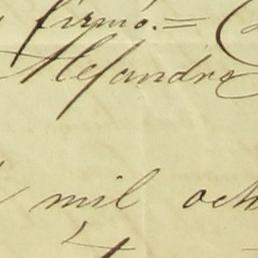 firmó.=
Alejandro
mil och